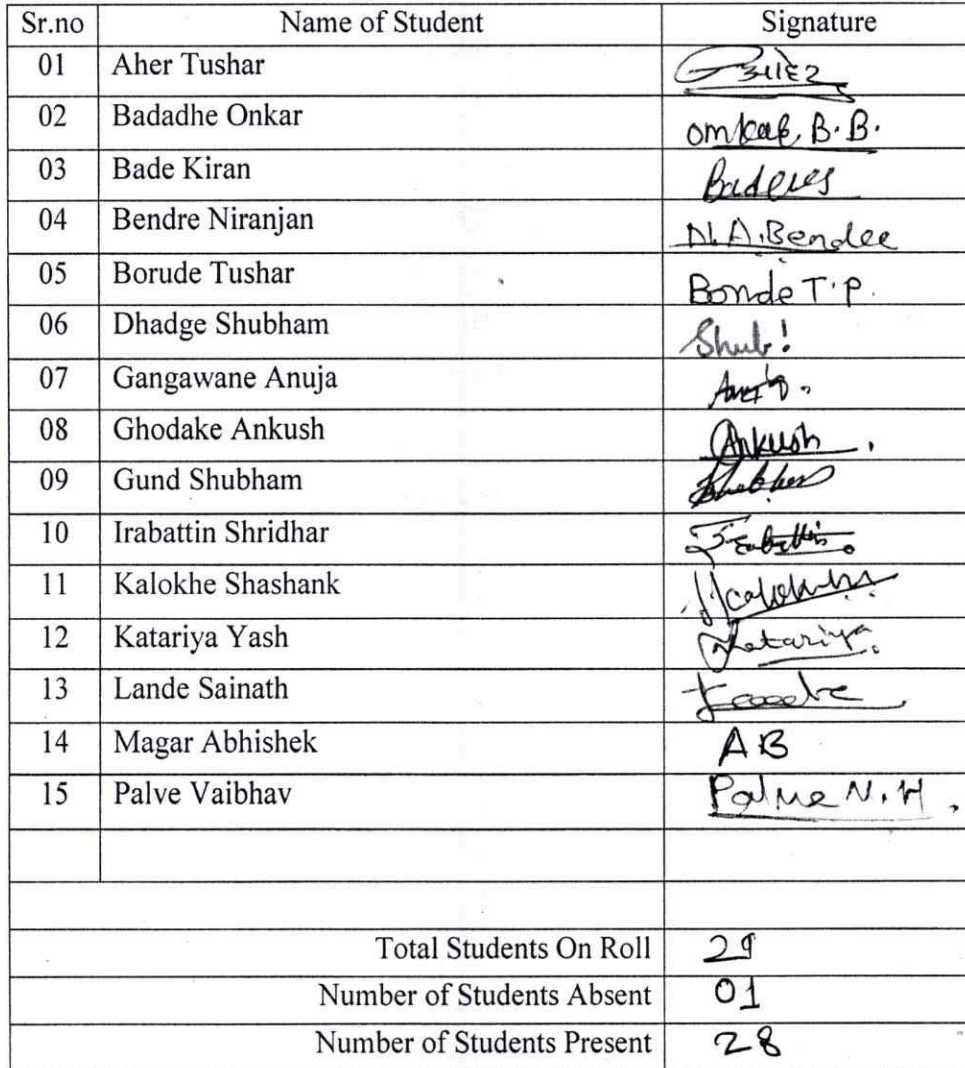 Sr.no Name of Student Signature
01 Aher Tushar
02 Badadhe Onkar omkar, B. B.
03 Bade Kiran
04 Bendre Niranjan N.A.Bendre
05 Borude Tushar Borude T.P.
06 Dhadge Shubham Shub!
07 Gangawane Anuja
08 Ghodake Ankush Ankush.
09 Gund Shubham
10 Irabattin Shridhar
11 Kalokhe Shashank
12 Katariya Yash Katariya
13 Lande Sainath
14 Magar Abhishek AB
15 Palve Vaibhav Palve N.H.
Total Students On Roll 29
Number of Students Absent 01
Number of Students Present 28